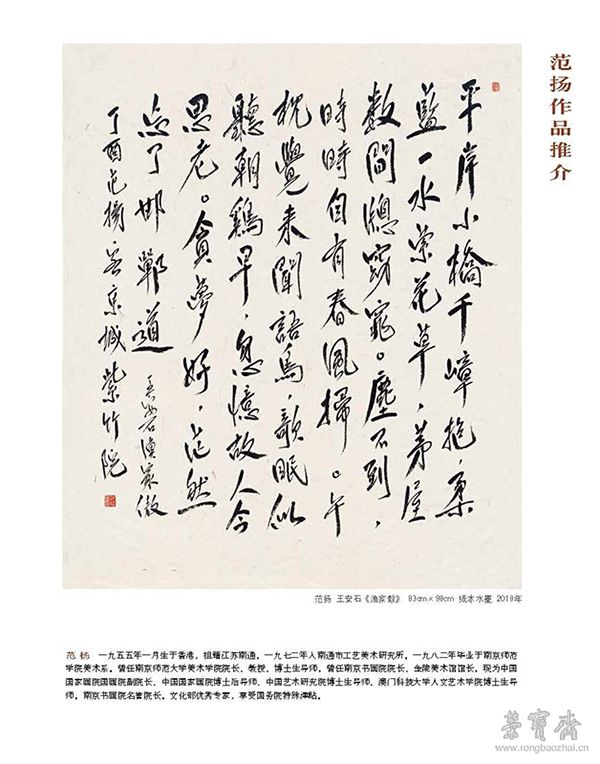 范扬作品推介
平岸小橋千嶂抱，柔
藍一水縈花草，茅屋
數間窻窈窕。塵不到，
時時自有春風掃。午
枕覺來聞語鳥，欹眠似
聽朝鷄早，忽憶故人今
總老。貪夢好，茫然
忘了邯鄲道 王安石漁家傲
丁酉范揚書京城紫竹院
范扬 王安石《渔家傲》 83cm×98cm 纸本水墨 2018年
范扬 一九五五年一月生于香港，祖籍江苏南通。一九七二年入南通市工艺美术研究所。一九八二年毕业于南京师范
学院美术系。曾任南京师范大学美术学院院长、教授、博士生导师，曾任南京书画院院长、金陵美术馆馆长，现为中国
国家画院国画院副院长、中国国家画院博士后导师、中国艺术研究院博士生导师、澳门科技大学人文艺术学院博士生导
师，南京书画院名誉院长。文化部优秀专家，享受国务院特殊津贴。
榮寶齋
www.rongbaozhai.cn